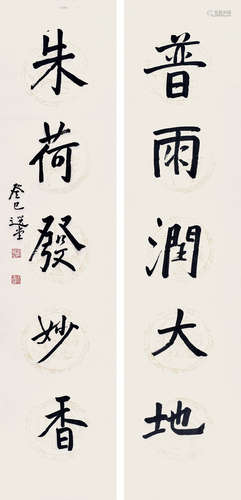 普雨潤大地
朱荷發妙香
癸巳 選堂